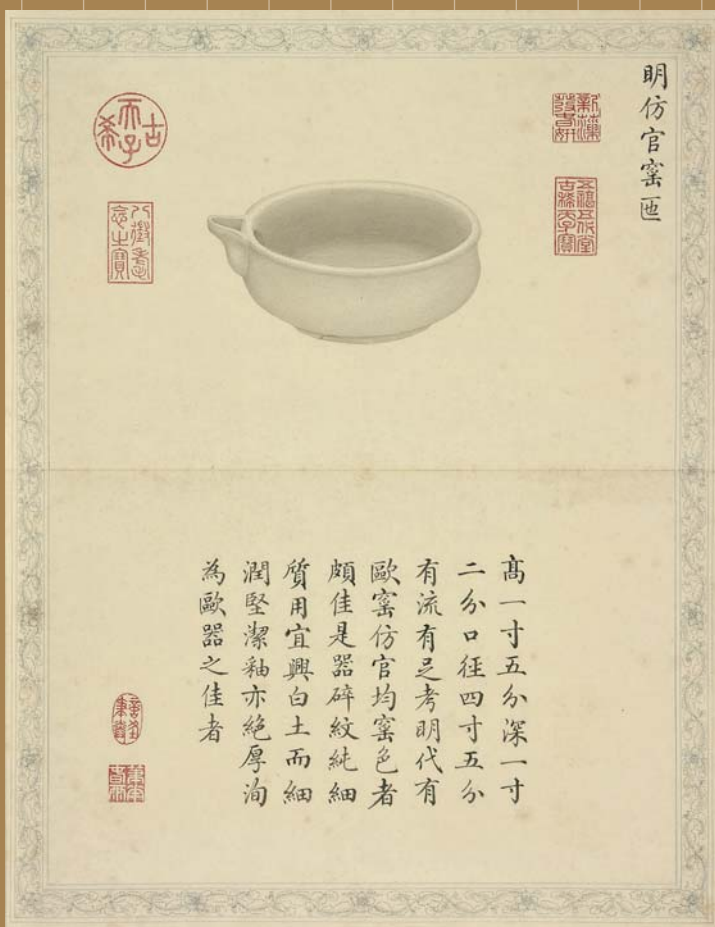 明仿官窯匜
新藻發春妍
五福五代堂古稀天子寶
古稀天子
八徵耄念之寶
高一寸五分深一寸
二分口徑四寸五分
有流有足考明代有
歐窯仿官均窯色者
頗佳是器碎紋純細
質用宜興白土而細
潤堅潔釉亦絶厚洵
為歐器之佳者